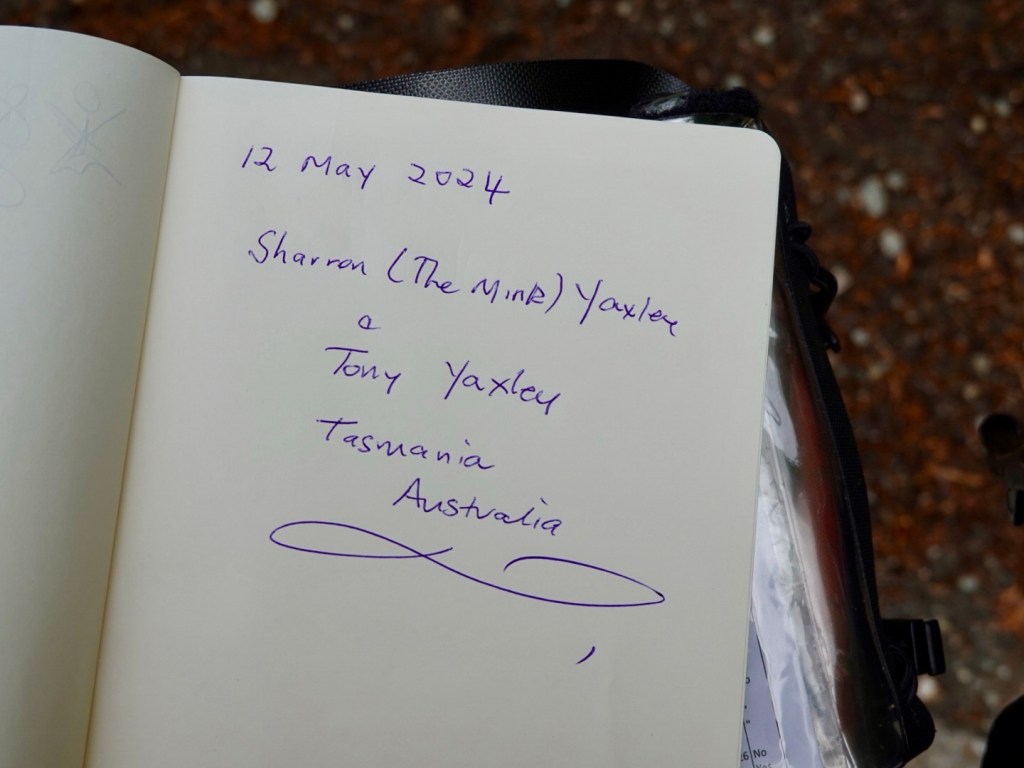 12 May 2024
Sharron (The Mink) Yaxley
&
Tony Yaxley
Tasmania
Australia
No